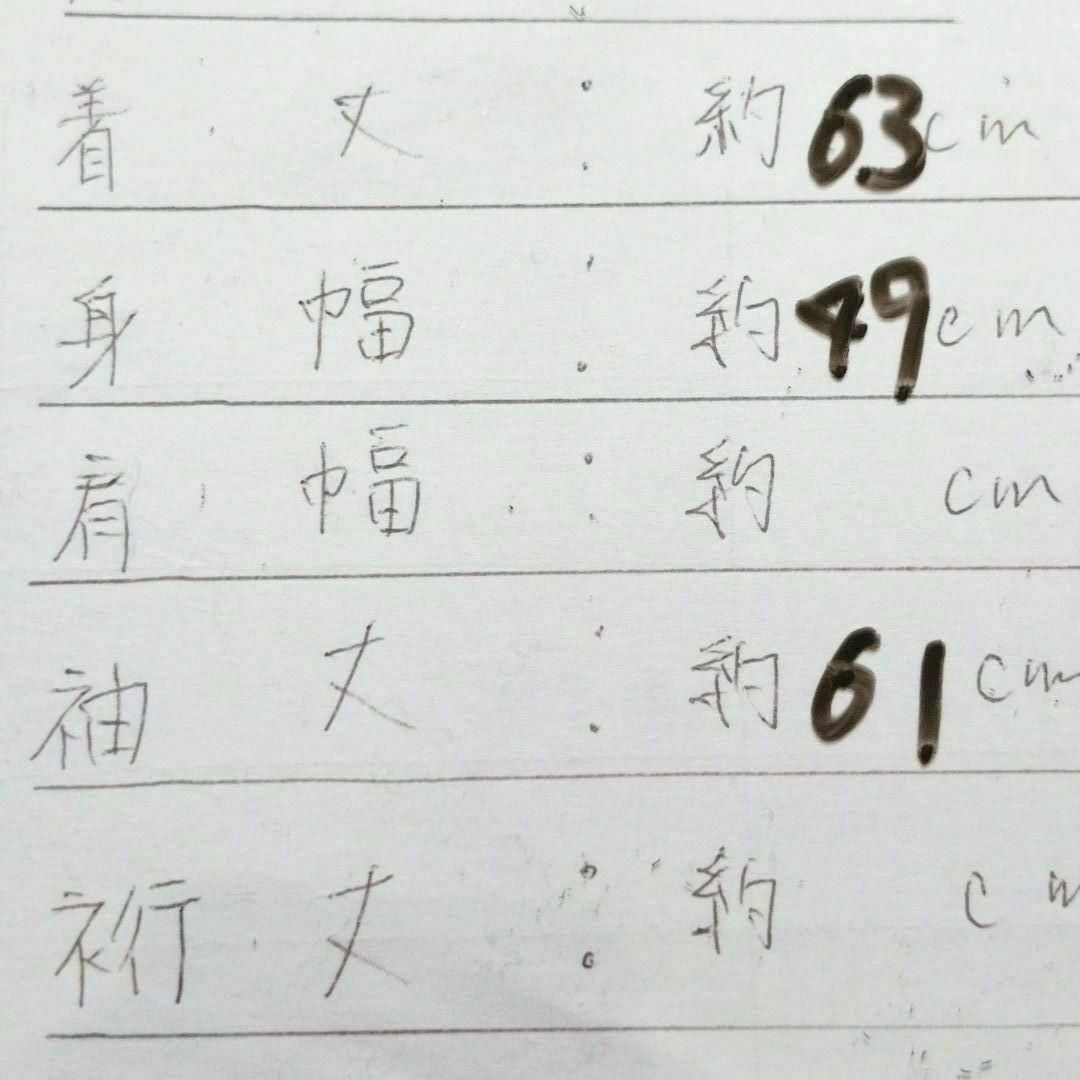 着丈：約63cm
身幅：約49cm
肩幅：約　cm
袖丈：約61cm
裄丈：約　cm